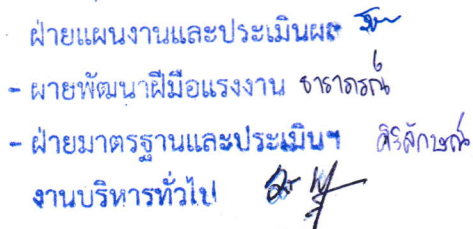 ฝ่ายแผนงานและประเมินผล
- ฝายพัฒนาฝีมือแรงงาน ธาราภรณ์
- ฝ่ายมาตรฐานและประเมินฯ ศิริลักษณ์
งานบริหารทั่วไป